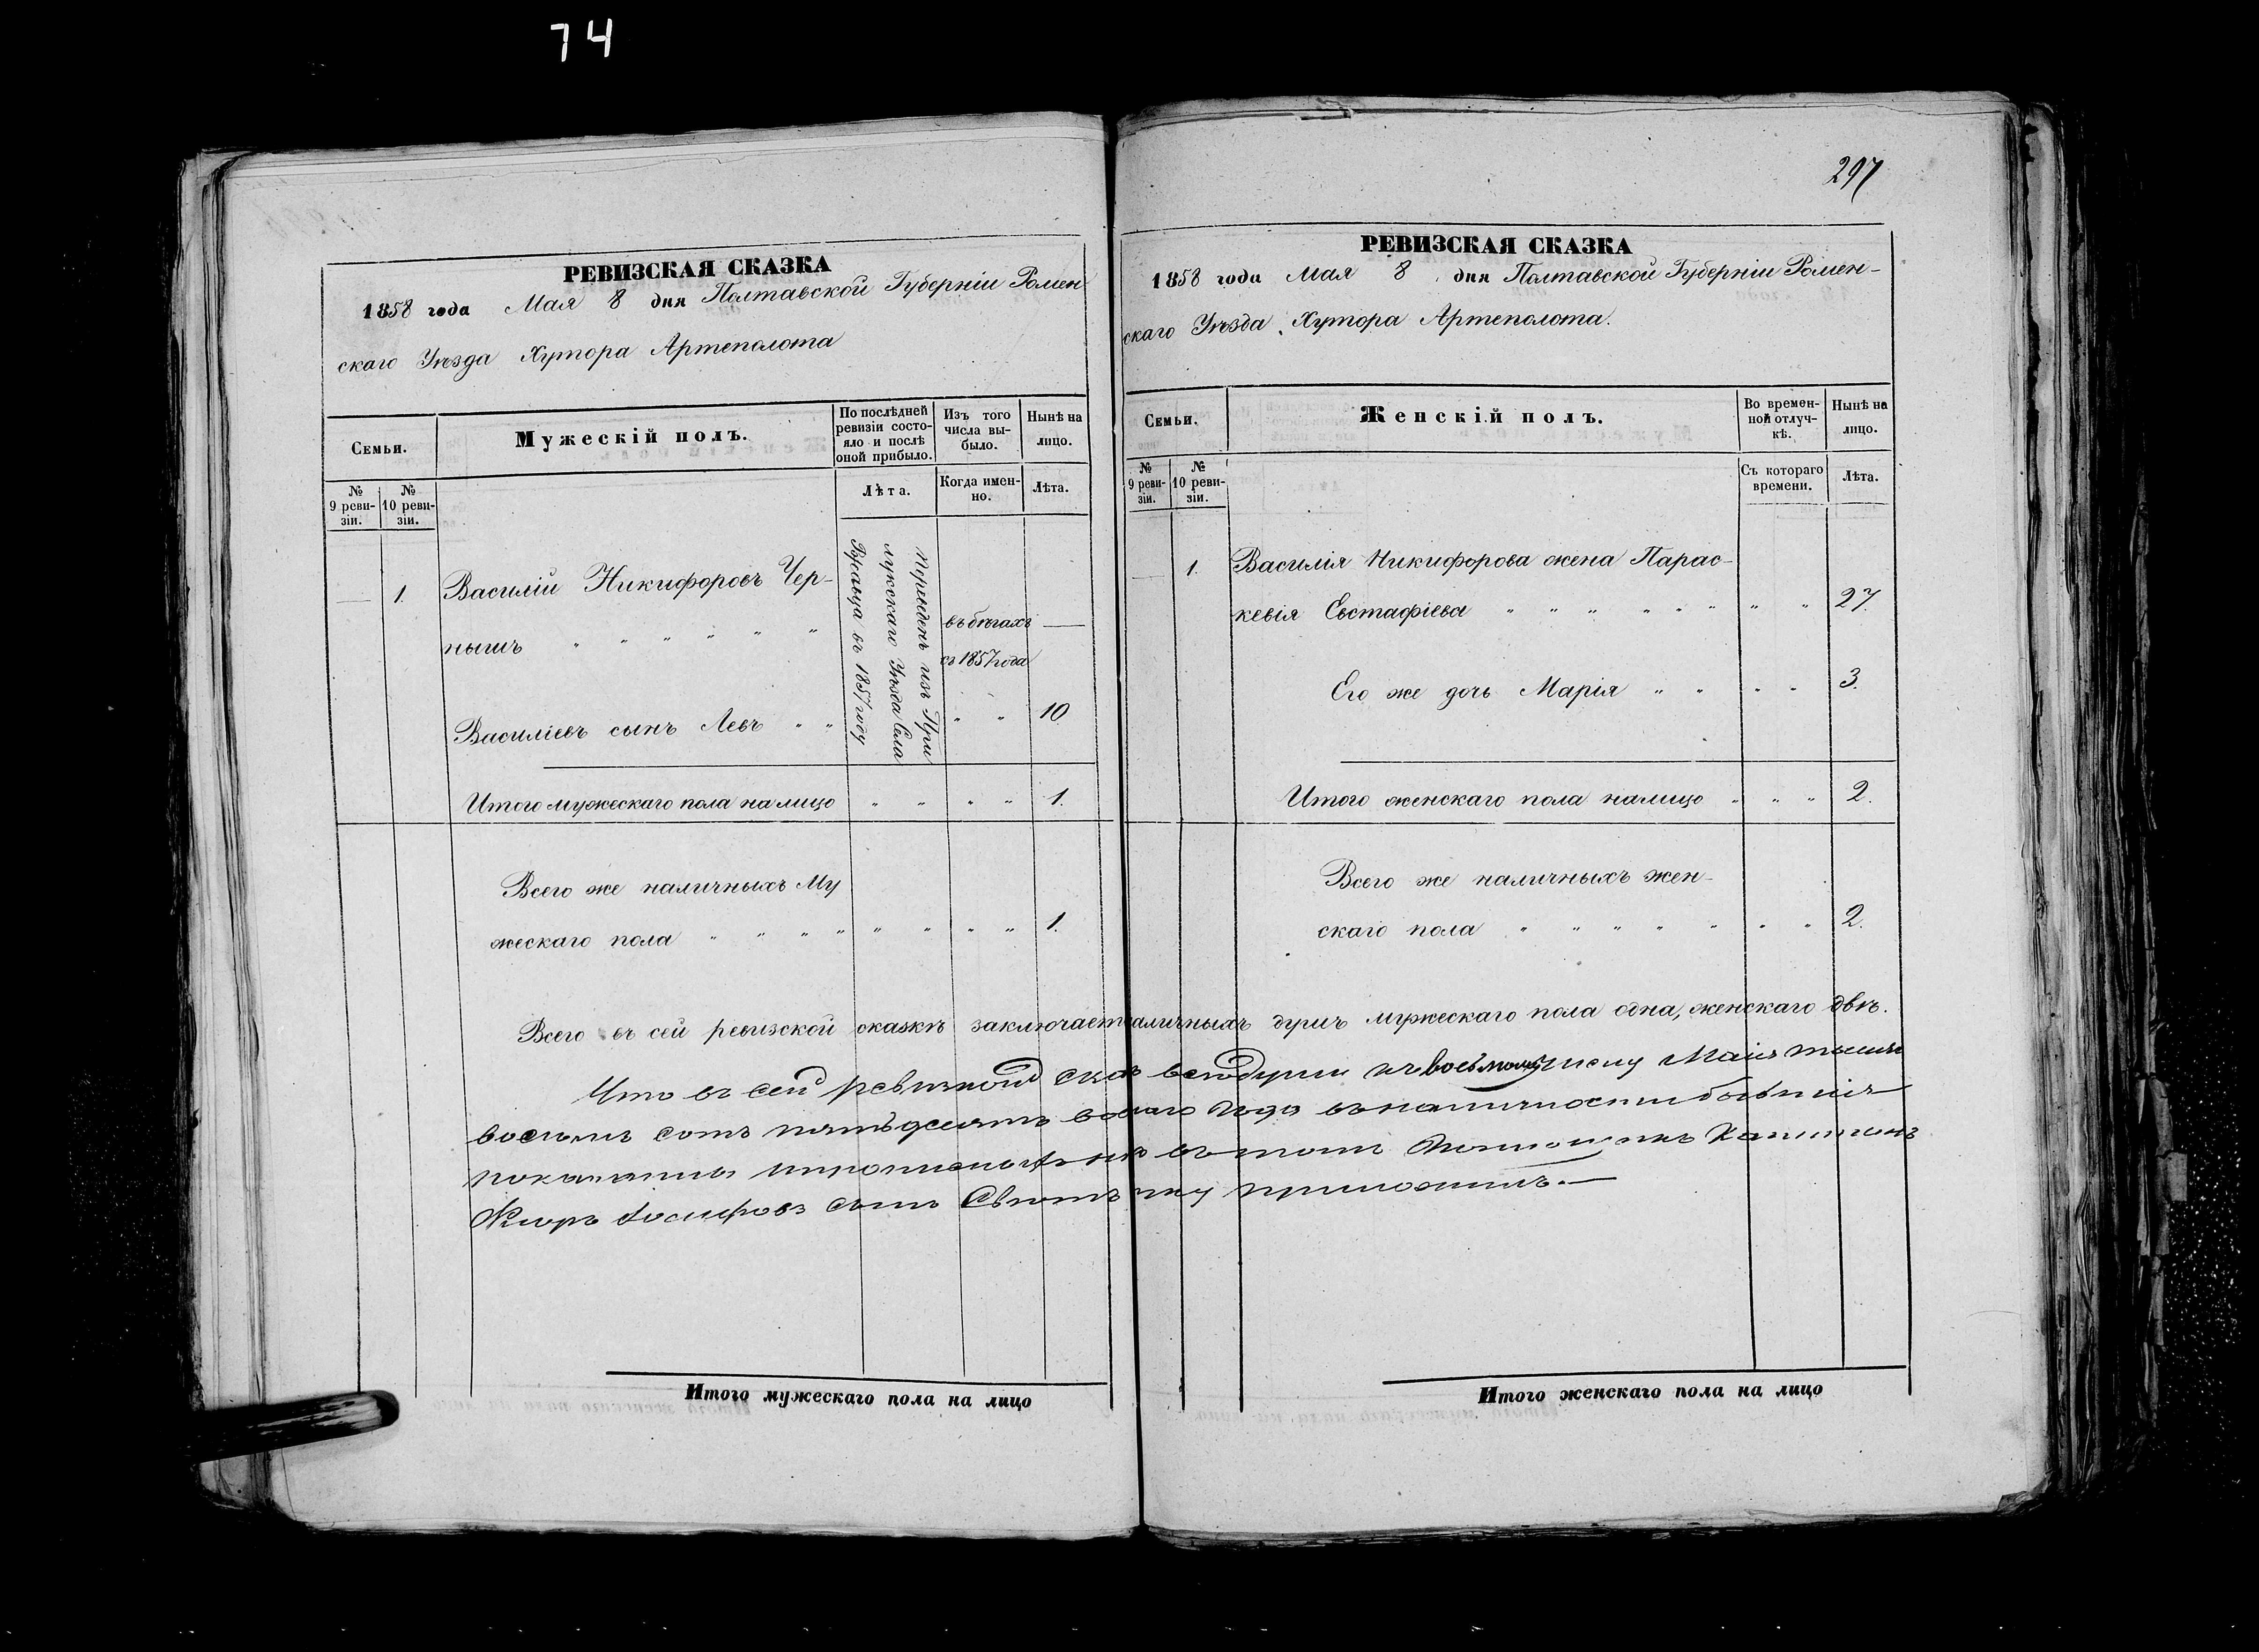 74
297
РЕВИЗСКАЯ СКАЗКА
1858 года Мая 8 дня Полтавской Губерніи Ромен
скаго Уѣзда Хутора Артеполота
Семьи.
Мужескій полъ.
По послѣдней ревизіи состояло и послѣ оной прибыло.
Изъ того числа выбыло.
Нынѣ на лицо.
№ 9 ревизіи.
№ 10 ревизіи.
Лѣта.
Когда именно.
Лѣта.
— 1. Василій Никифоровъ Чер-
нышъ " " " " " "
въ бѣгахъ —
съ 1857 года
Василіевъ сынъ Левъ " " " " 10
лукскаго Уѣзда Села
въ 1857 году
Итого мужескаго пола налицо " " " " 1.
Всего же наличныхъ Му
жескаго пола " " " " " " " " 1.
РЕВИЗСКАЯ СКАЗКА
1858 года Мая 8 дня Полтавской Губерніи Ромен-
скаго Уѣзда Хутора Артеполота.
Семьи.
Женскій полъ.
Во временной отлучкѣ.
Нынѣ на лицо.
№ 9 ревизіи.
№ 10 ревизіи.
Съ котораго времени.
Лѣта.
— 1. Василія Никифорова жена Парас-
кевія Евстафіева " " " " " " " " 27.
Его же дочь Марія " " " " 3.
Итого женскаго пола налицо " " " 2.
Всего же наличныхъ жен-
скаго пола " " " " " " " 2.
Всего въ сей ревизской сказкѣ заключает наличныхъ душъ мужескаго пола одна, женскаго двѣ.
Что въ сей ревизкой всѣ души къ восьмому числу Маія
восемь сотъ пятьдесятъ года въ наличности бывшія
показаны въ томъ Капитанъ
сынъ приложилъ. —
Итого мужескаго пола на лицо
Итого женскаго пола на лицо